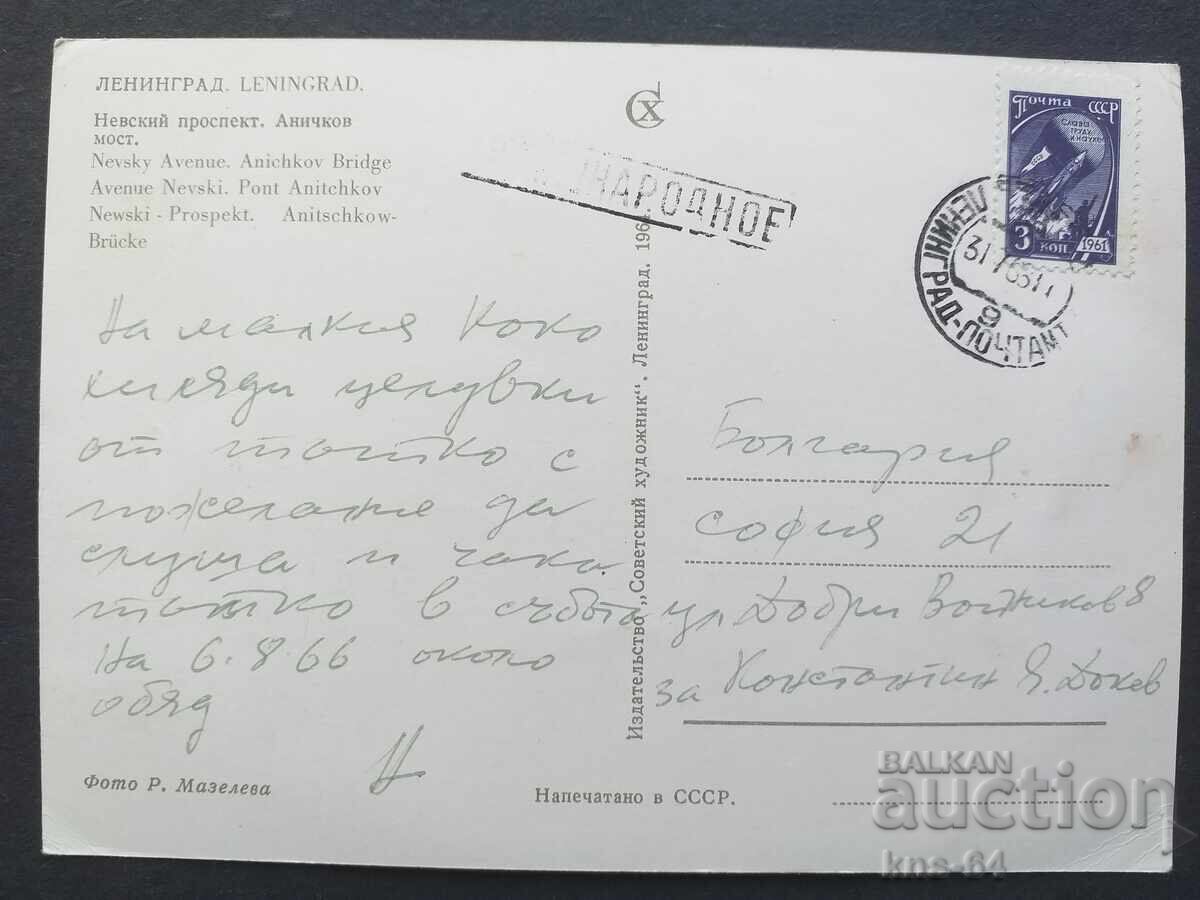 ЛЕНИНГРАД. LENINGRAD.
Невский проспект. Аничков
мост.
Nevsky Avenue. Anichkov Bridge
Avenue Nevski. Pont Anitchkov
Newski - Prospekt. Anitschkow-
Brücke
СХ
НАРОДНОЕ
Почта СССР
СЛАВА
ТРУДУ
И НАУКЕ
3 КОП 1961
ЛЕНИНГРАД-ПОЧТАМТ
9
На малкия Коко
хиляди целувки
от татко с
пожелание да
слуша и чака
татко в събота
на 6.8.66 около
обяд
Издательство „Советский художник“. Ленинград. 196
Болгария
София 21
ул Добри Войников 8
за Константин Я. Доков
Фото Р. Мазелева
Напечатано в СССР.
BALKAN
auction
kns-64